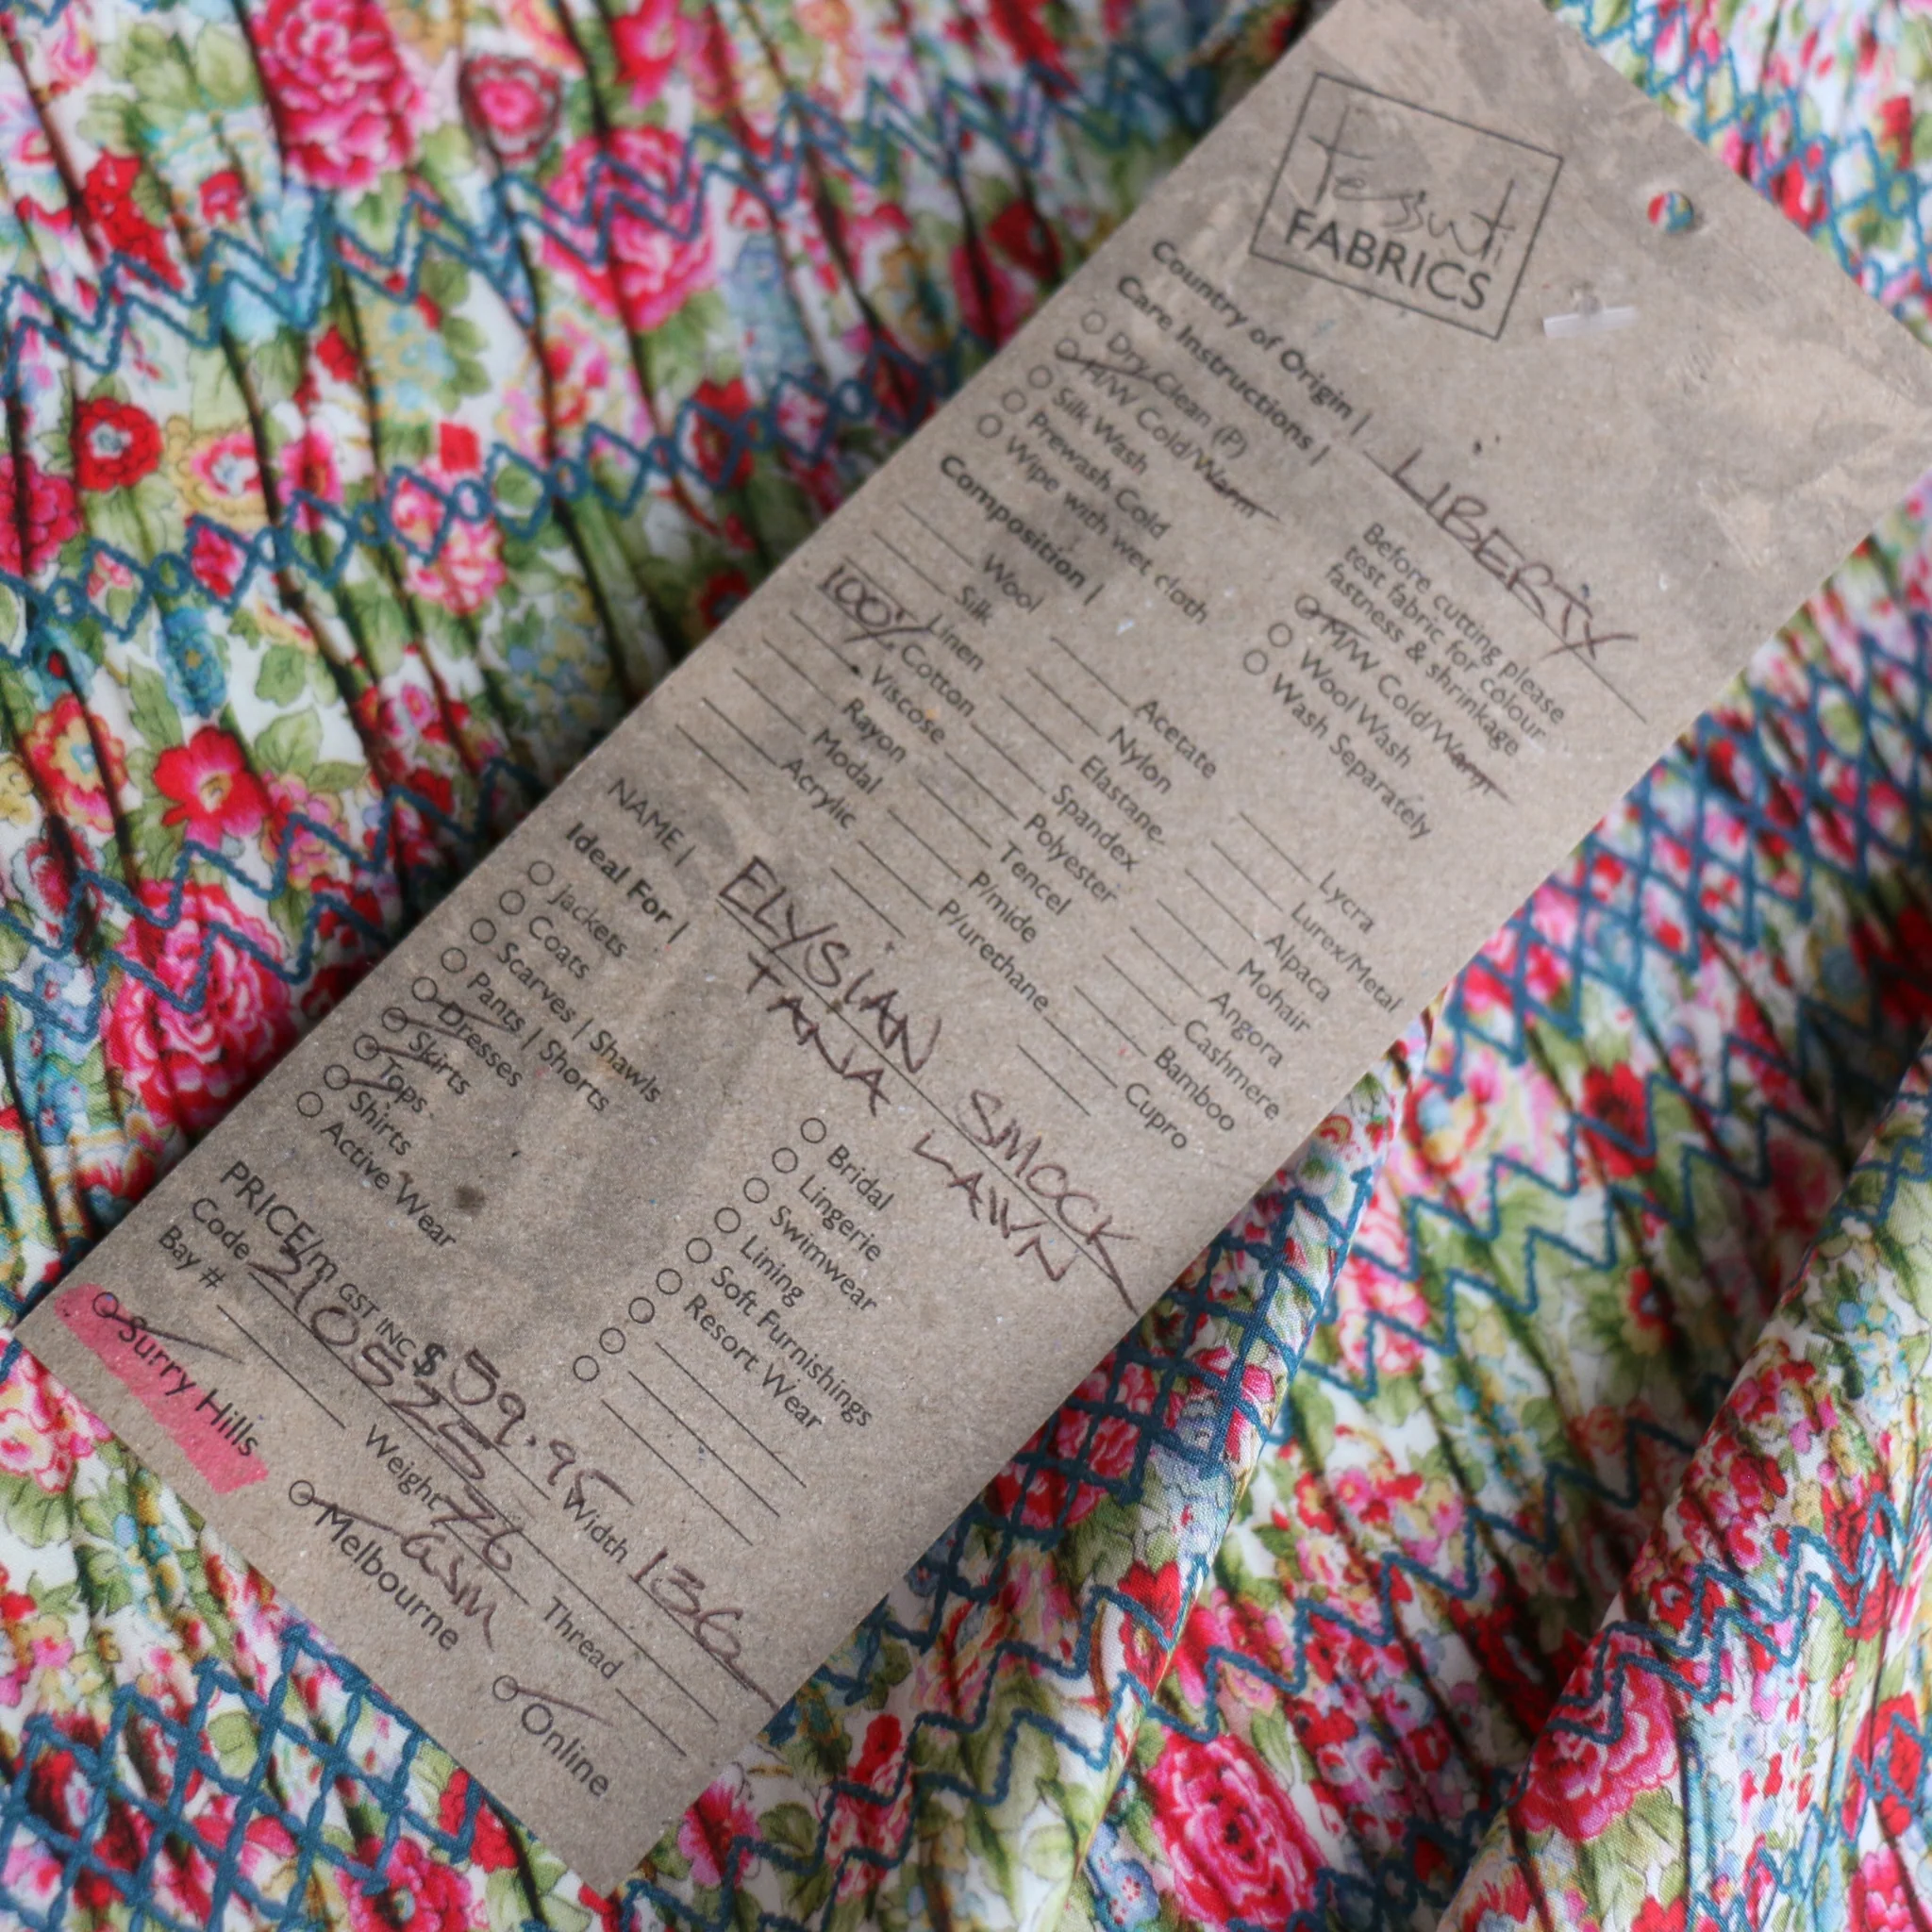 tessuti
FABRICS
Country of Origin | LIBERTY
Care Instructions |
Before cutting please
test fabric for colour
fastness & shrinkage
Dry Clean (P)
H/W Cold/Warm
Silk Wash
Prewash Cold
Wipe with wet cloth
M/W Cold/Warm
Wool Wash
Wash Separately
Composition |
Wool
Silk
Linen
100% Cotton
Viscose
Rayon
Modal
Acrylic
Acetate
Nylon
Elastane
Spandex
Polyester
Tencel
P/mide
P/urethane
Lycra
Lurex/Metal
Alpaca
Mohair
Angora
Cashmere
Bamboo
Cupro
NAME | ELYSIAN SMOCK
TANA LAWN
Ideal For |
Jackets
Coats
Scarves | Shawls
Pants | Shorts
Dresses
Skirts
Tops
Shirts
Active Wear
Bridal
Lingerie
Swimwear
Lining
Soft Furnishings
Resort Wear
PRICE/m GST INC $ 59.95
Code 210525 Width 136
Bay # Weight 76 GSM Thread
Surry Hills Melbourne Online